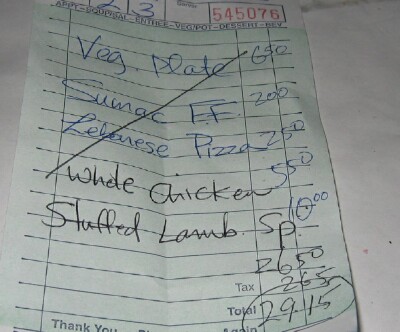 2 3
545076
APPT-SOUP/SAL-ENTREE-VEG/POT-DESSERT-BEV
Veg. Plate 650
Sumac F.F. 200
Lebanese Pizza 250
Whole Chicken 550
Stuffed Lamb. Sp. 10.00
2650
Tax 265
Total 2915
Thank You Again